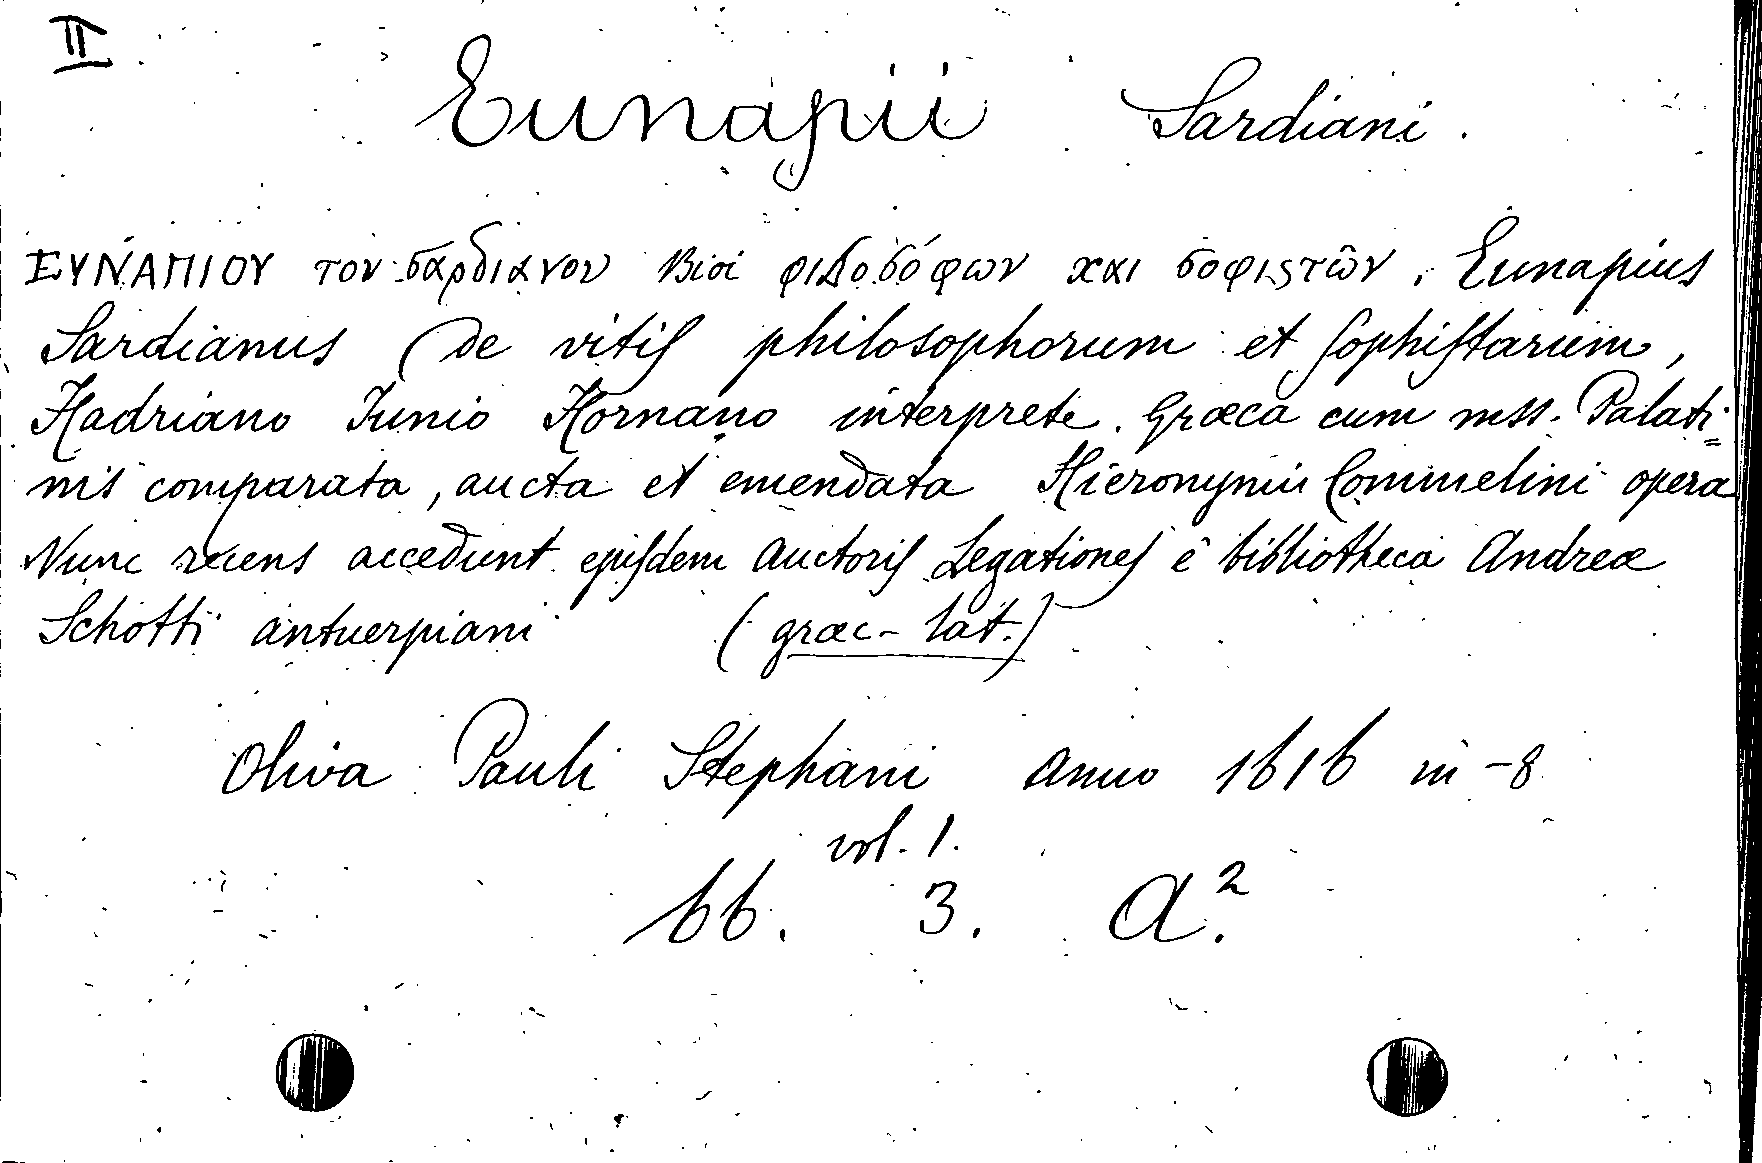 II
Eunapii Sardiani.
ΕΥΝΑΠΙΟΥ του σαρδιανου Βιοι φιλοσόφων και σοφιςτῶν. Eunapius
Sardianus De vitis philosophorum et sophistarum,
Hadriano Iunio Hornano interprete. Græca cum mss. Palati=
nis comparata, aucta et emendata Hieronymii Commelini opera
Nunc recens accedunt ejusdem auctoris Legationes è bibliotheca Andreæ
Schotti antuerpiani (græc-lat.)
Oliva Pauli Stephani anno 1616 in-8
vol. 1.
66. 3. A².